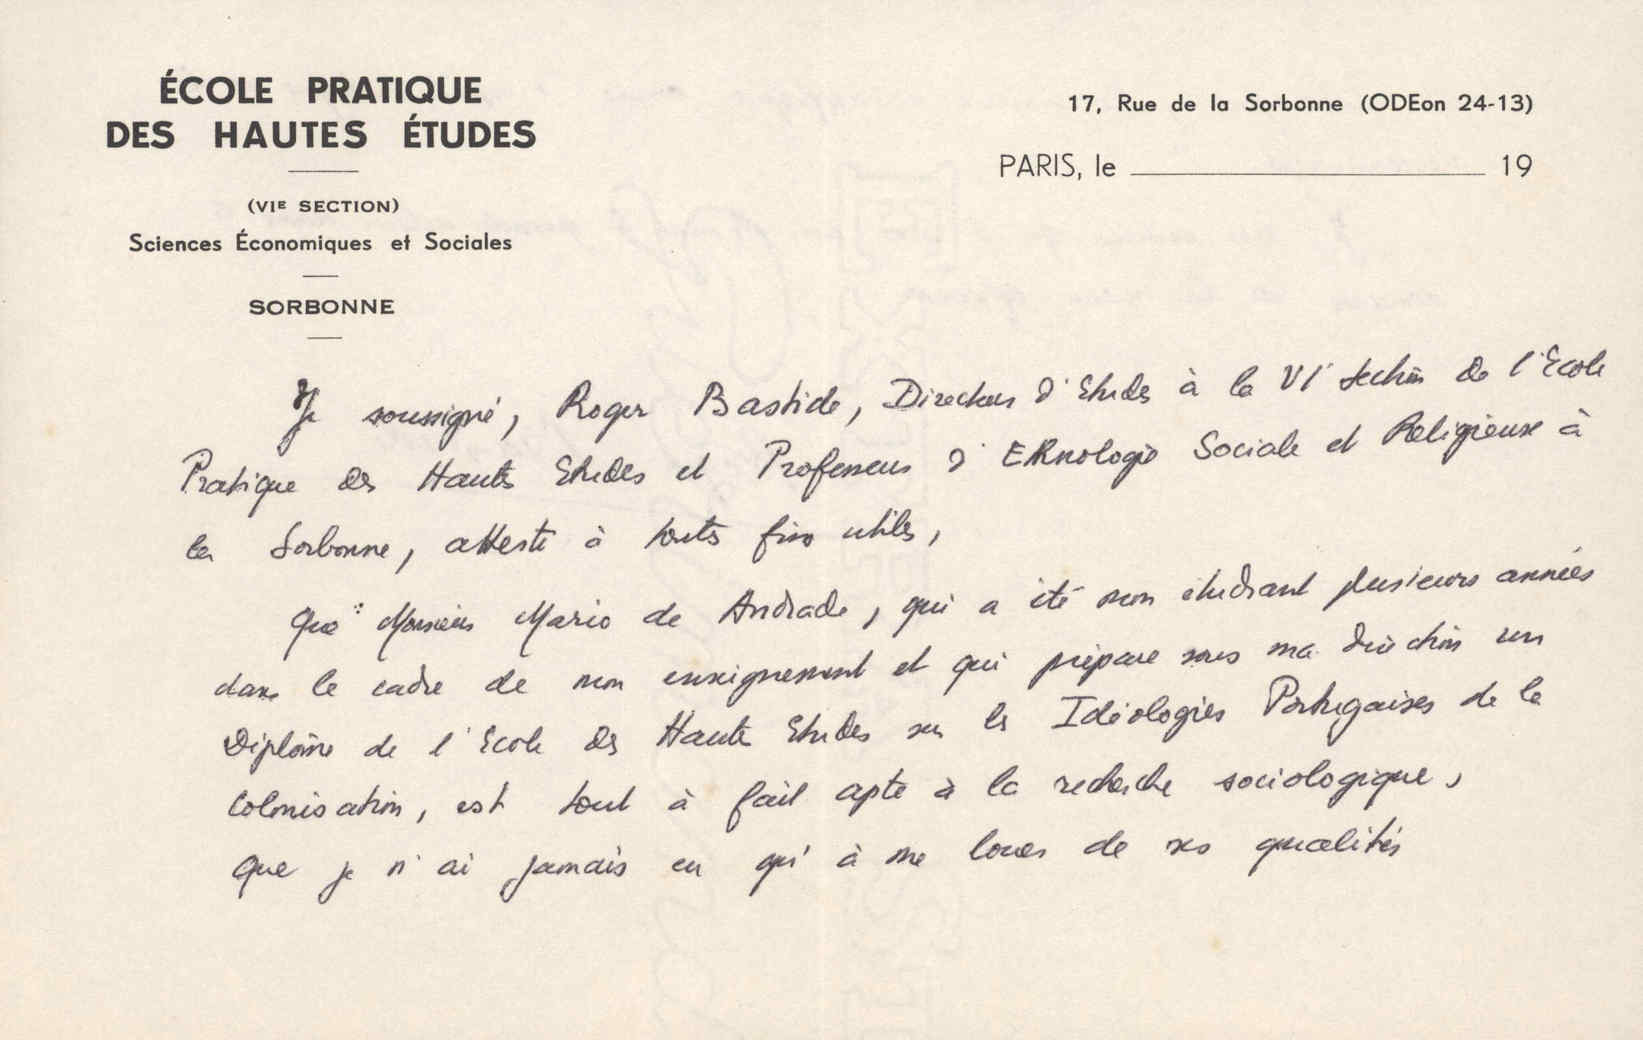 ÉCOLE PRATIQUE
DES HAUTES ÉTUDES
(VIE SECTION)
Sciences Économiques et Sociales
SORBONNE
17, Rue de la Sorbonne (ODEon 24-13)
PARIS, le 19
Je soussigné, Roger Bastide, Directeur d'Etudes à la VIe Section de l'Ecole
Pratique des Hautes Etudes et Professeur d'Ethnologie Sociale et Religieuse à
la Sorbonne, atteste à toutes fins utiles,
Que Monsieur Mario de Andrade, qui a été mon étudiant plusieurs années
dans le cadre de mon enseignement et qui prépare sous ma direction un
Diplôme de l'Ecole des Hautes Etudes sur les Idéologies Portugaises de la
Colonisation, est tout à fait apte à la recherche sociologique,
Que je n'ai jamais eu qu'à me louer de ses qualités